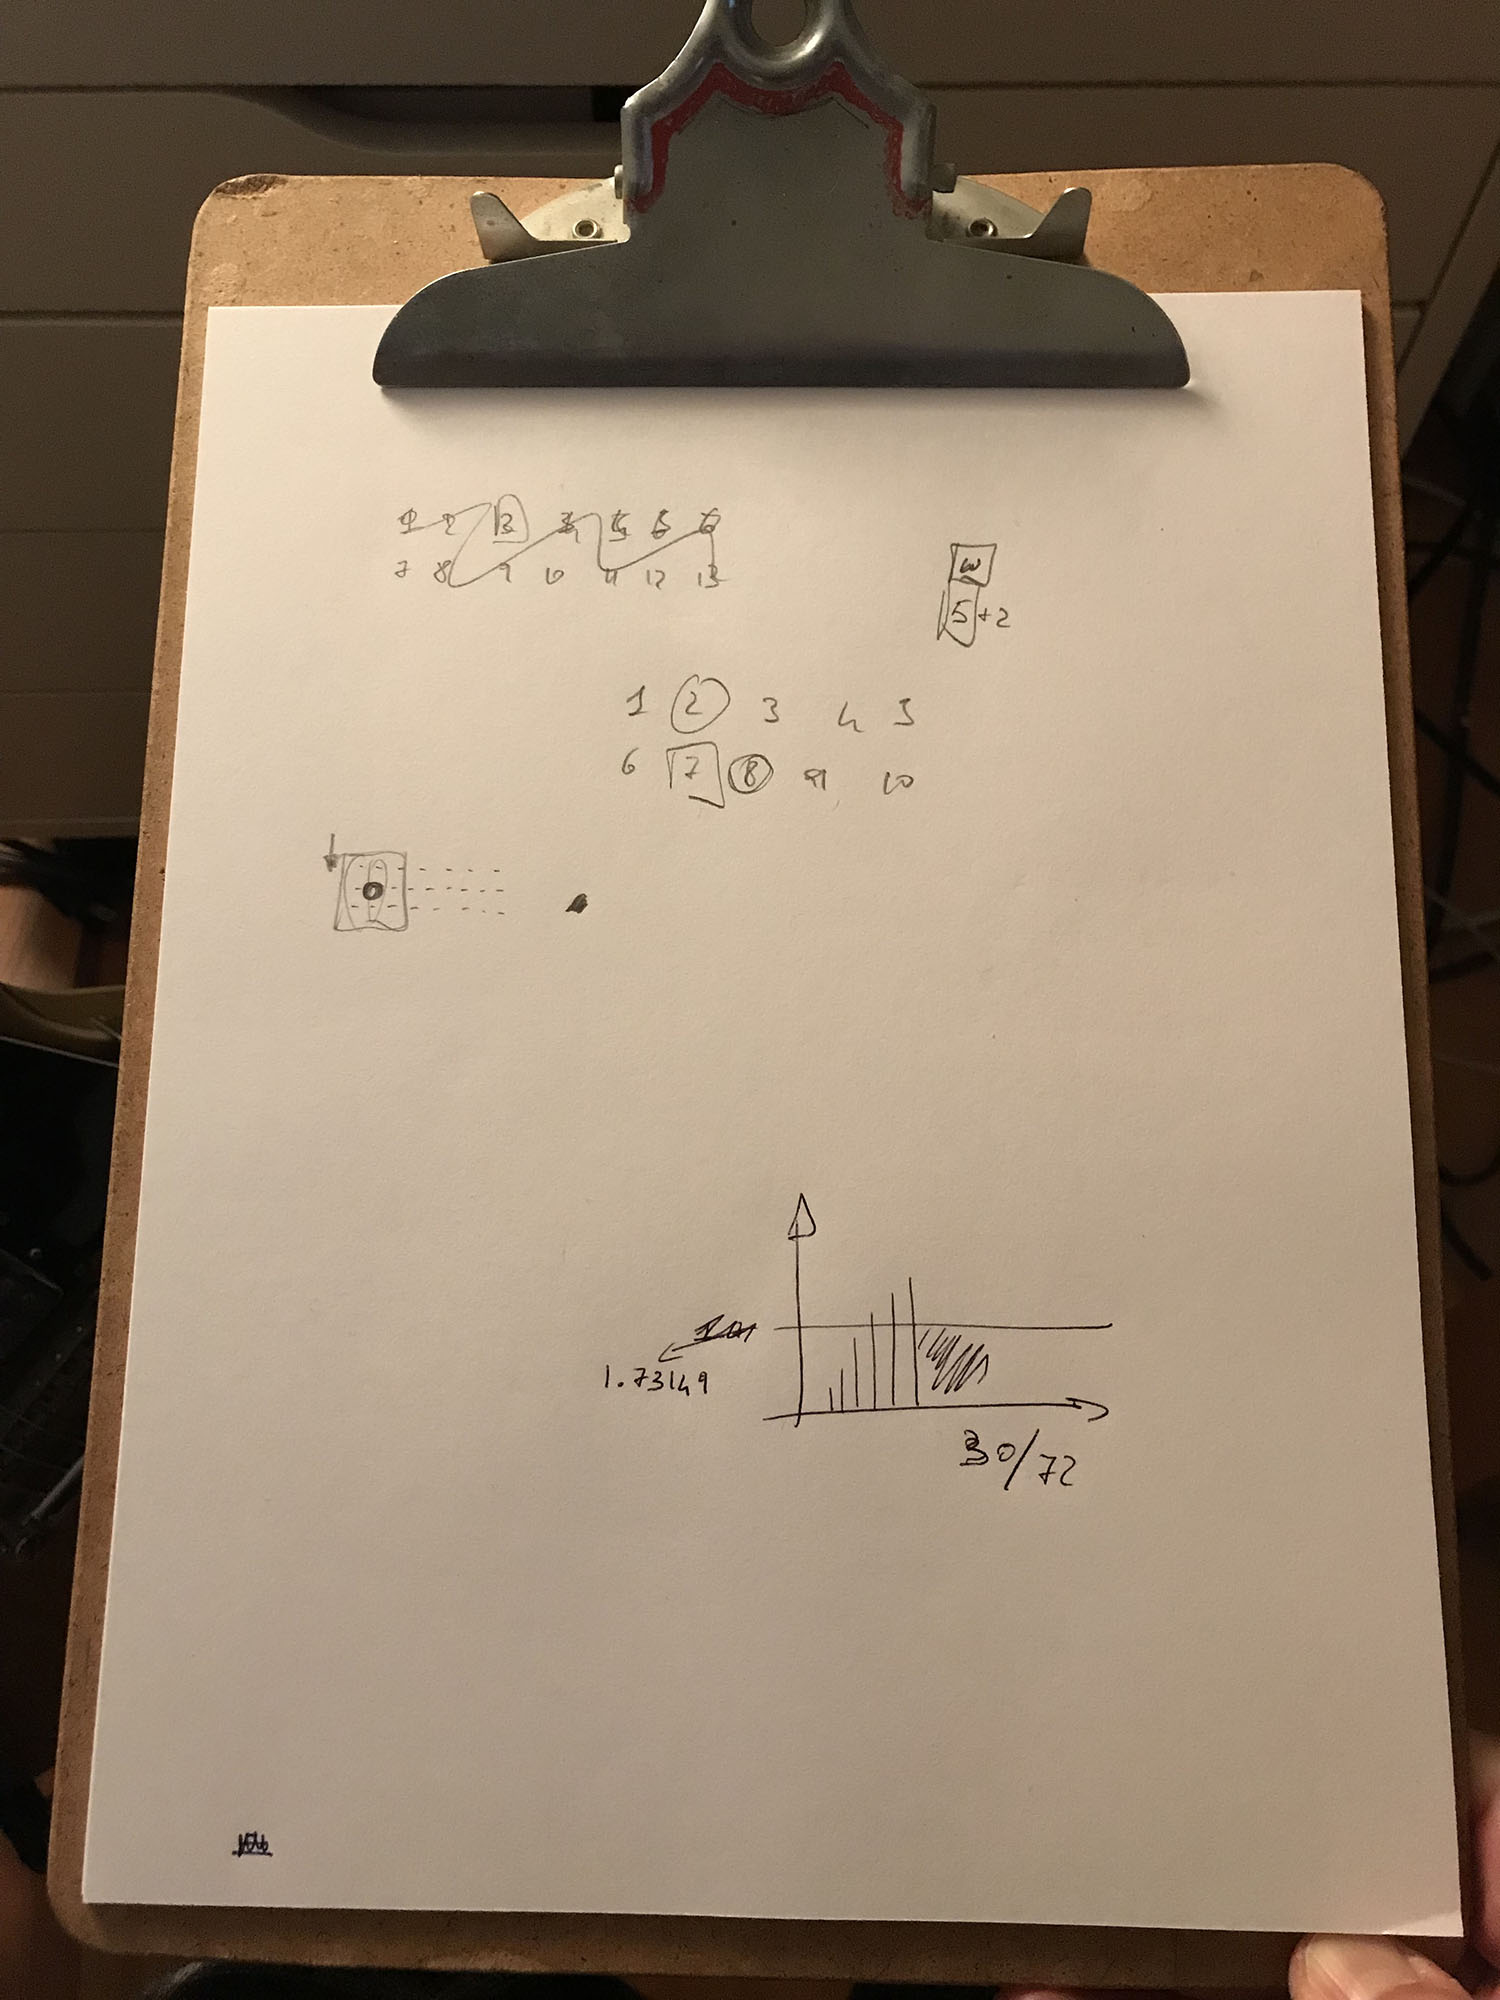 1 2 3 4 5 6
7 8 9 10 11 12 13
W
5+2
1 2 3 4 5
6 7 8 9 10
0
1.73149
30/72